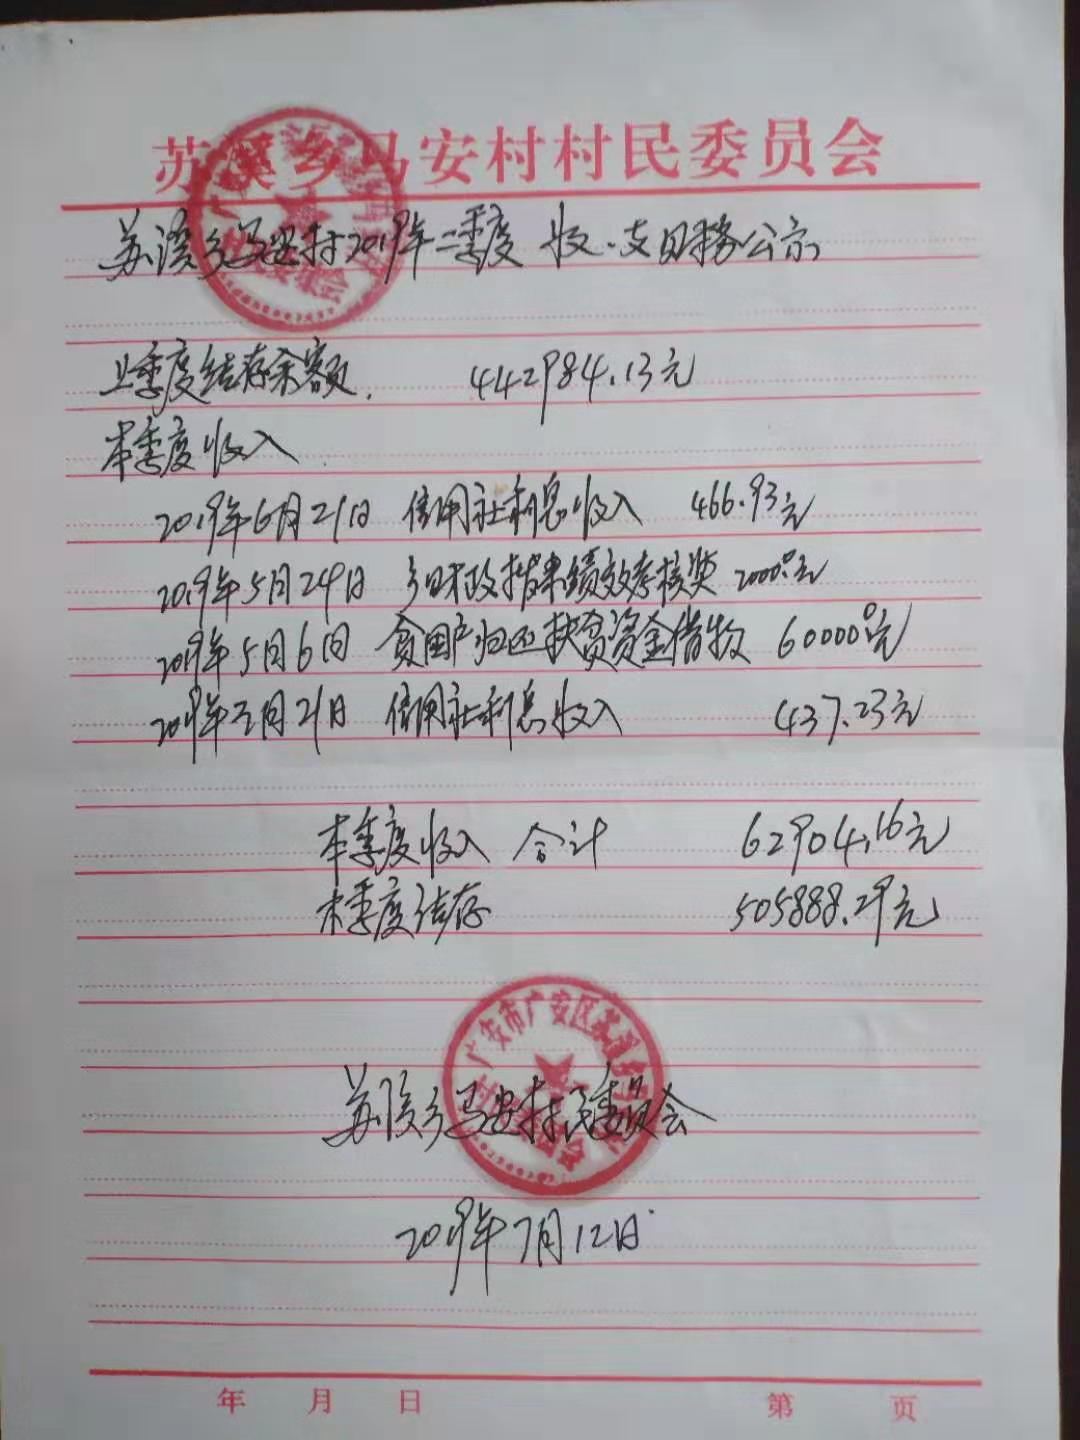 苏溪乡马安村村民委员会
苏溪乡马安村2019年二季度 收、支财务公示
上季度结存余额. 442984.13元
本季度收入
2019年6月21日 信用社利息收入 466.93元
2019年5月24日 乡财政拨来绩效考核奖 2000.0元
2019年5月6日 贫困户归还扶贫资金借款 60000.0元
2019年3月21日 信用社利息收入 437.23元
本季度收入 合计 62904.16元
本季度结存 505888.29元
广安市广安区苏溪乡
苏溪乡马安村民委员会
2019年7月12日
年 月 日 第 页